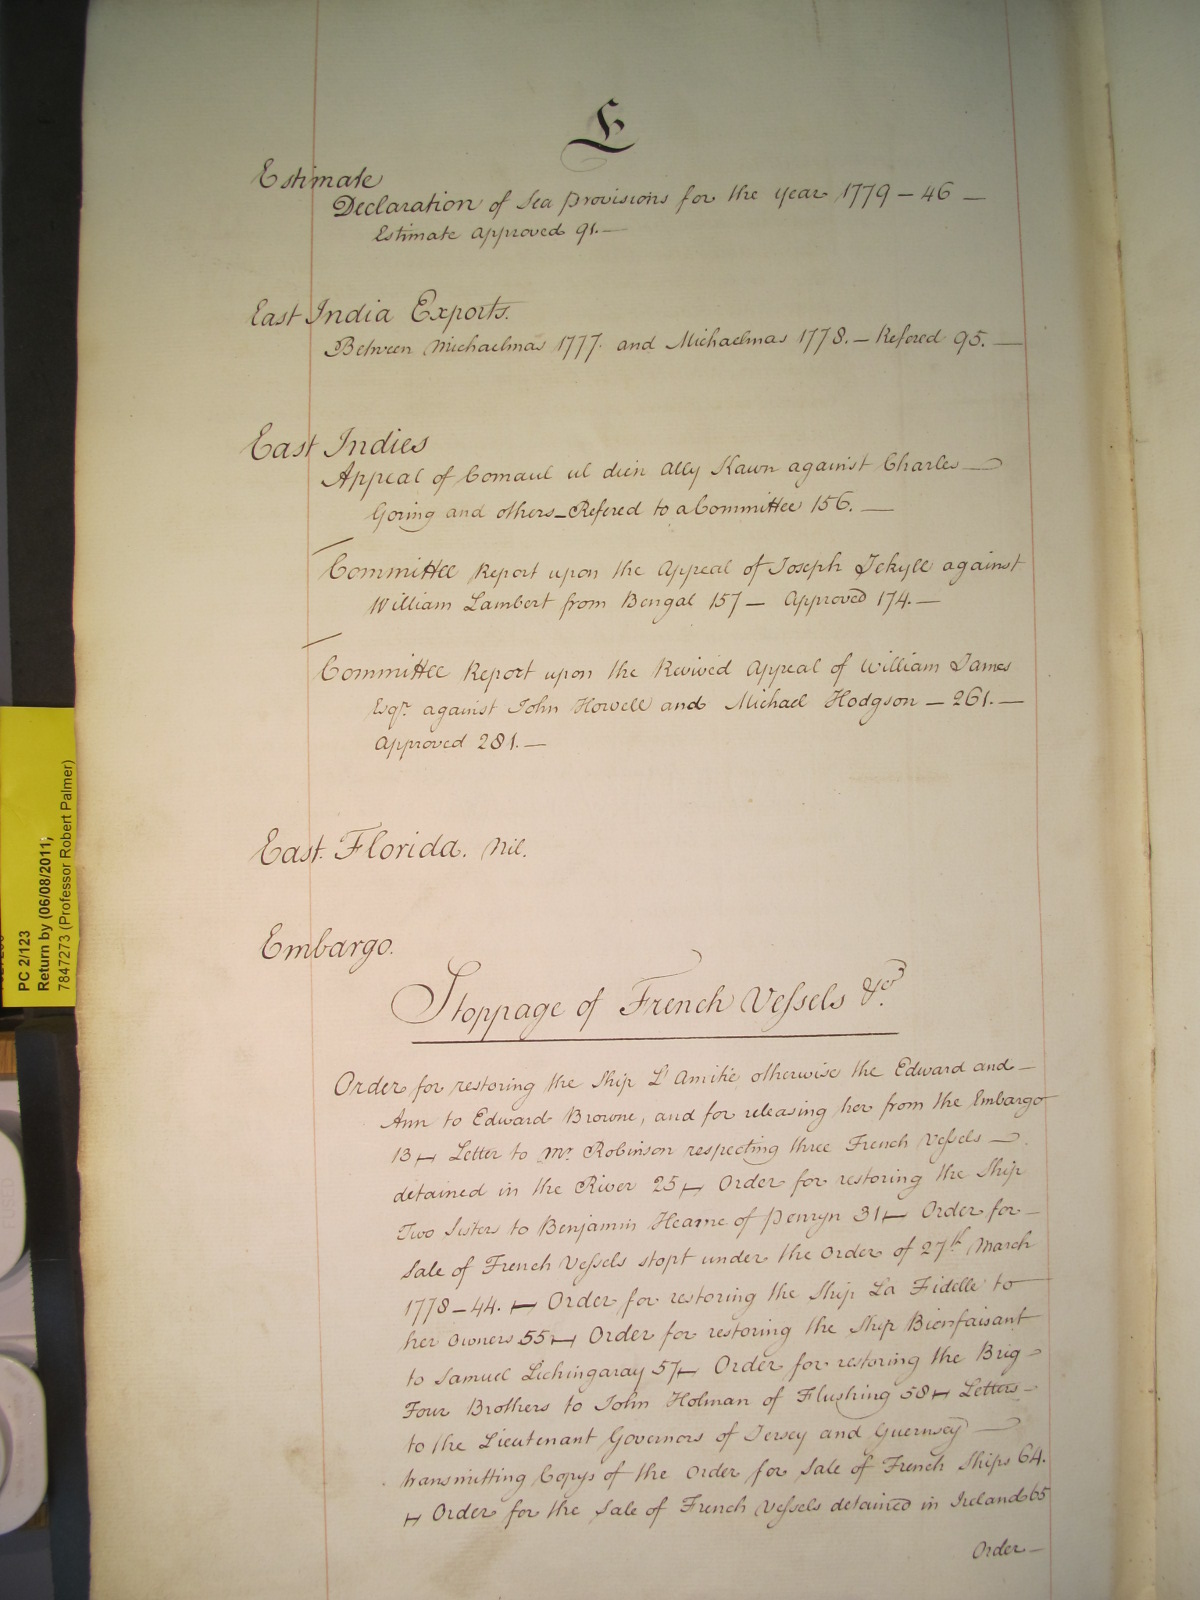 E
Estimate
Declaration of Sea Provisions for the year 1779 – 46 —
Estimate approved 91. —
East India Exports.
Between Michaelmas 1777. and Michaelmas 1778. – Refered 95. —
East Indies
Appeal of Comaul ul dien Ally Kawn against Charles —
Goring and others – Refered to a Committee 156. —
Committee Report upon the Appeal of Joseph Jekyll against
William Lambert from Bengal 157 – Approved 174. —
Committee Report upon the Revived Appeal of William James
Esqr. against John Howell and Michael Hodgson – 261. —
Approved 281. —
East Florida. Nil.
Embargo.
Stoppage of French Vessels &ca.
Order for restoring the Ship L'Amitie otherwise the Edward and —
Ann to Edward Browne, and for releasing her from the Embargo
13 – Letter to Mr. Robinson respecting three French Vessels —
detained in the River 25 – Order for restoring the Ship
Two Sisters to Benjamin Hearne of Penryn 31 – Order for —
Sale of French Vessels stopt under the Order of 27th March
1778 – 44. – Order for restoring the Ship La Fidelle to
her Owners 55 – Order for restoring the Ship Bienfaisant
to Samuel Lichingaray 57 – Order for restoring the Brig –
Four Brothers to John Holman of Flushing 58 – Letters –
to the Lieutenant Governors of Jersey and Guernsey —
transmitting Copys of the Order for Sale of French Ships 64.
– Order for the Sale of French Vessels detained in Ireland 65
Order —
PC 2/123
Return by (06/08/2011;
7847273 (Professor Robert Palmer)